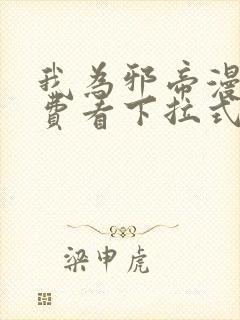 我為邪帝漫
費看下拉式
梁申虎